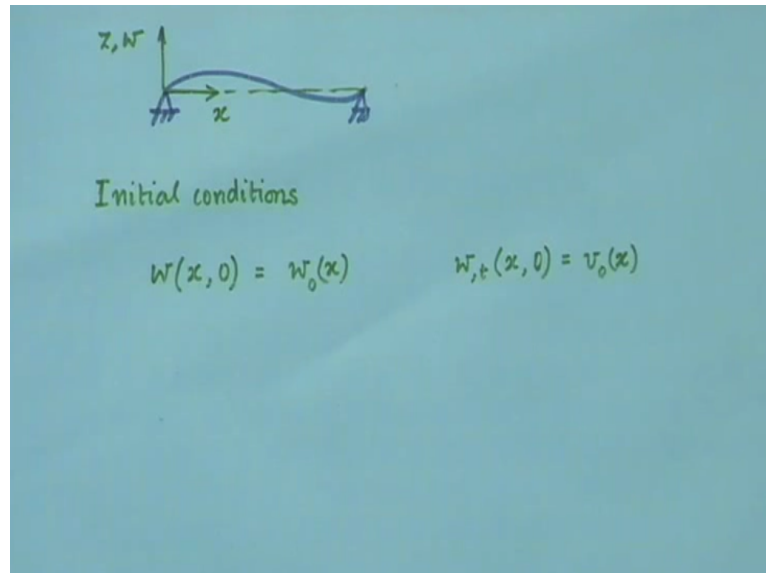 z, w
x
Initial conditions
w(x, 0) = w₀(x) w,ₜ(x, 0) = v₀(x)